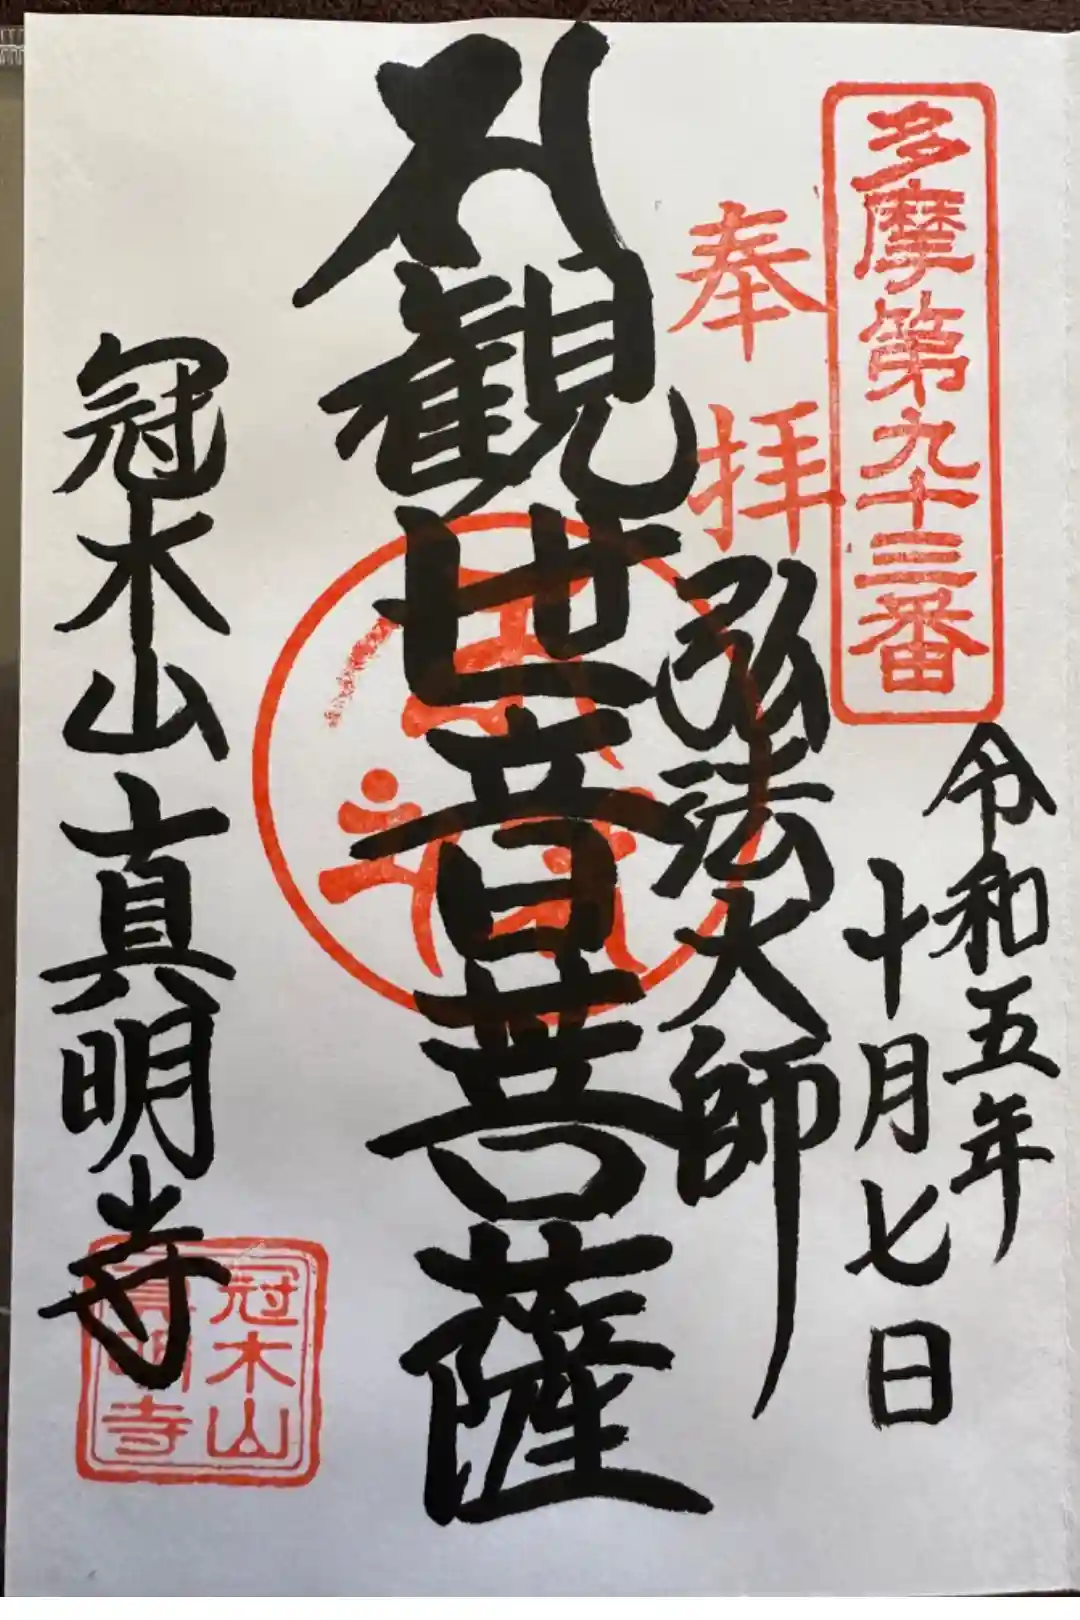 多摩第九十三番
奉拝
令和五年
十月七日
弘法大師
観世音菩薩
冠木山真明寺
冠木山
真明寺